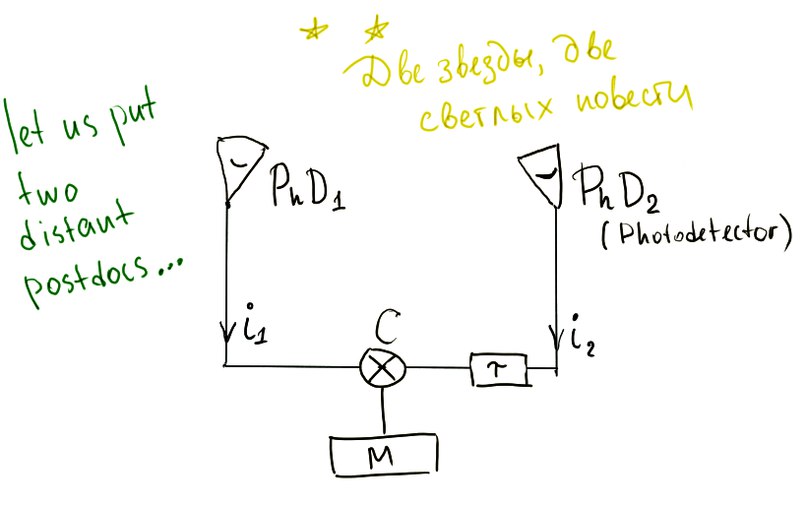 Две звезды, две
светлых повести
let us put
two
distant
postdocs...
PhD₁
PhD₂
(Photodetector)
i₁
C
i₂
τ
M